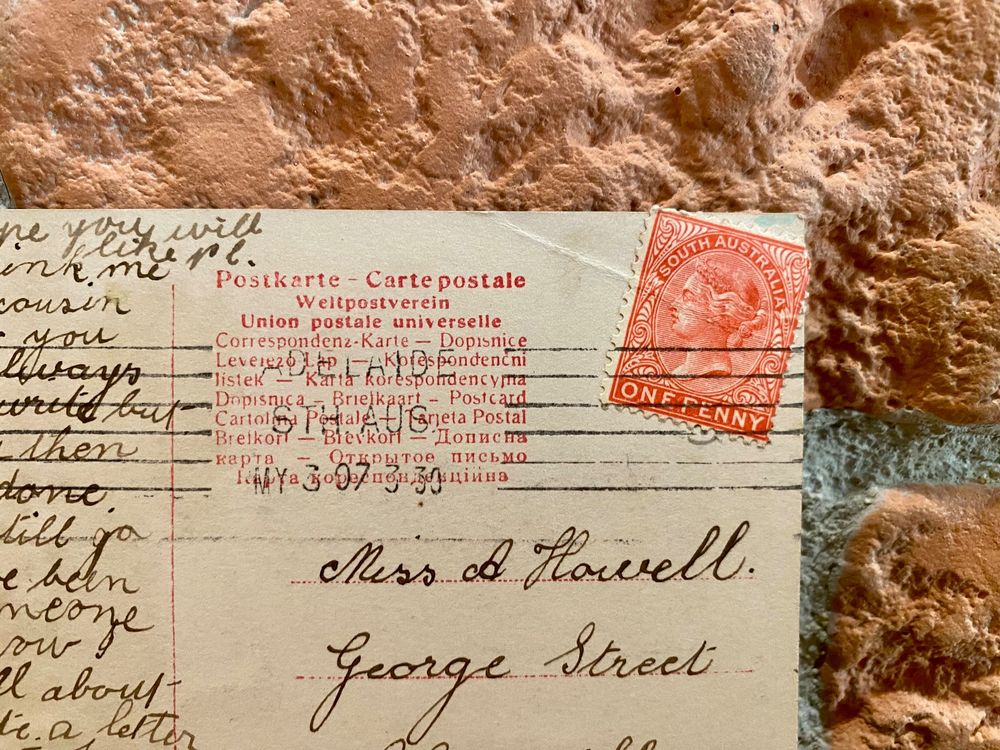 you will
like P.C.
me
cousin
you
always
write but
then
done
still go
been
someone
about
a letter
Postkarte – Carte postale
Weltpostverein
Union postale universelle
Correspondenz-Karte — Dopisnice
Levelező-Lap — Korespondenční
lístek — Karta korespondencyjna
Dopisnica — Briefkaart — Postcard
Cartolina Postale — Tarjeta Postal
Brefkort — Brevkort — Дописна
карта — Открытое письмо
Карта кореспонденційна
ADELAIDE
STH AUS
MY 3 07 3 30
SOUTH AUSTRALIA
ONE PENNY
Miss A Howell.
George Street